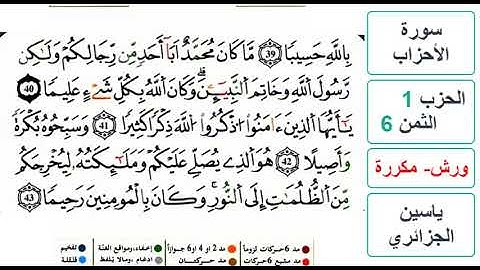 بِاللَّهِ حَسِيبًا 39 مَّا كَانَ مُحَمَّدٌ أَبَآ أَحَدٍ مِّن رِّجَالِكُمْ وَلَٰكِن
رَّسُولَ اللَّهِ وَخَاتِمَ النَّبِيٓـِٕينَ وَكَانَ اللَّهُ بِكُلِّ شَےْءٍ عَلِيمًا 40
يَٰٓأَيُّهَا الَّذِينَ ءَامَنُوا اذْكُرُوا اللَّهَ ذِكْرًا كَثِيرًا 41 وَسَبِّحُوهُ بُكْرَةً
وَأَصِيلًا 42 هُوَ الَّذِي يُصَلِّي عَلَيْكُمْ وَمَلَٰٓئِكَتُهُ لِيُخْرِجَكُم
مِّنَ الظُّلُمَٰتِ إِلَى النُّورِ وَكَانَ بِالْمُومِنِينَ رَحِيمًا 43
سورة
الأحزاب
الحزب 1
الثمن 6
ورش- مكررة
ياسين
الجزائري
مد 6 حركات لزوماً
مد 2 او 4 او 6 جوازاً
إخفاء، ومواقع الغنة
تفخيم
مد مشبع 6 حركات
مد حركتان
ادغام، ومالا يلفظ
قلقلة